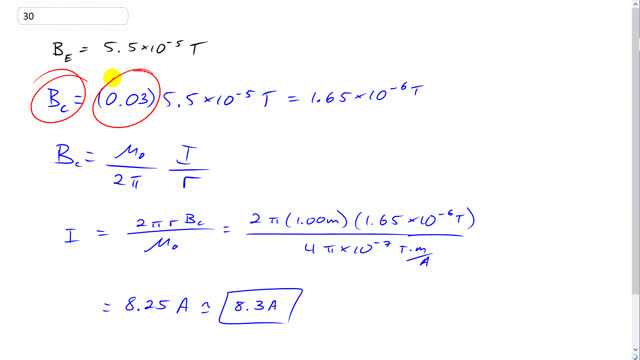 30
B_E = 5.5×10⁻⁵ T
B_c = (0.03) 5.5×10⁻⁵ T = 1.65×10⁻⁶ T
B_c = μ₀/2π I/r
I = 2πr B_c/μ₀ = 2π(1.00m)(1.65×10⁻⁶ T)/4π×10⁻⁷ T·m/A
= 8.25 A ≈ 8.3A